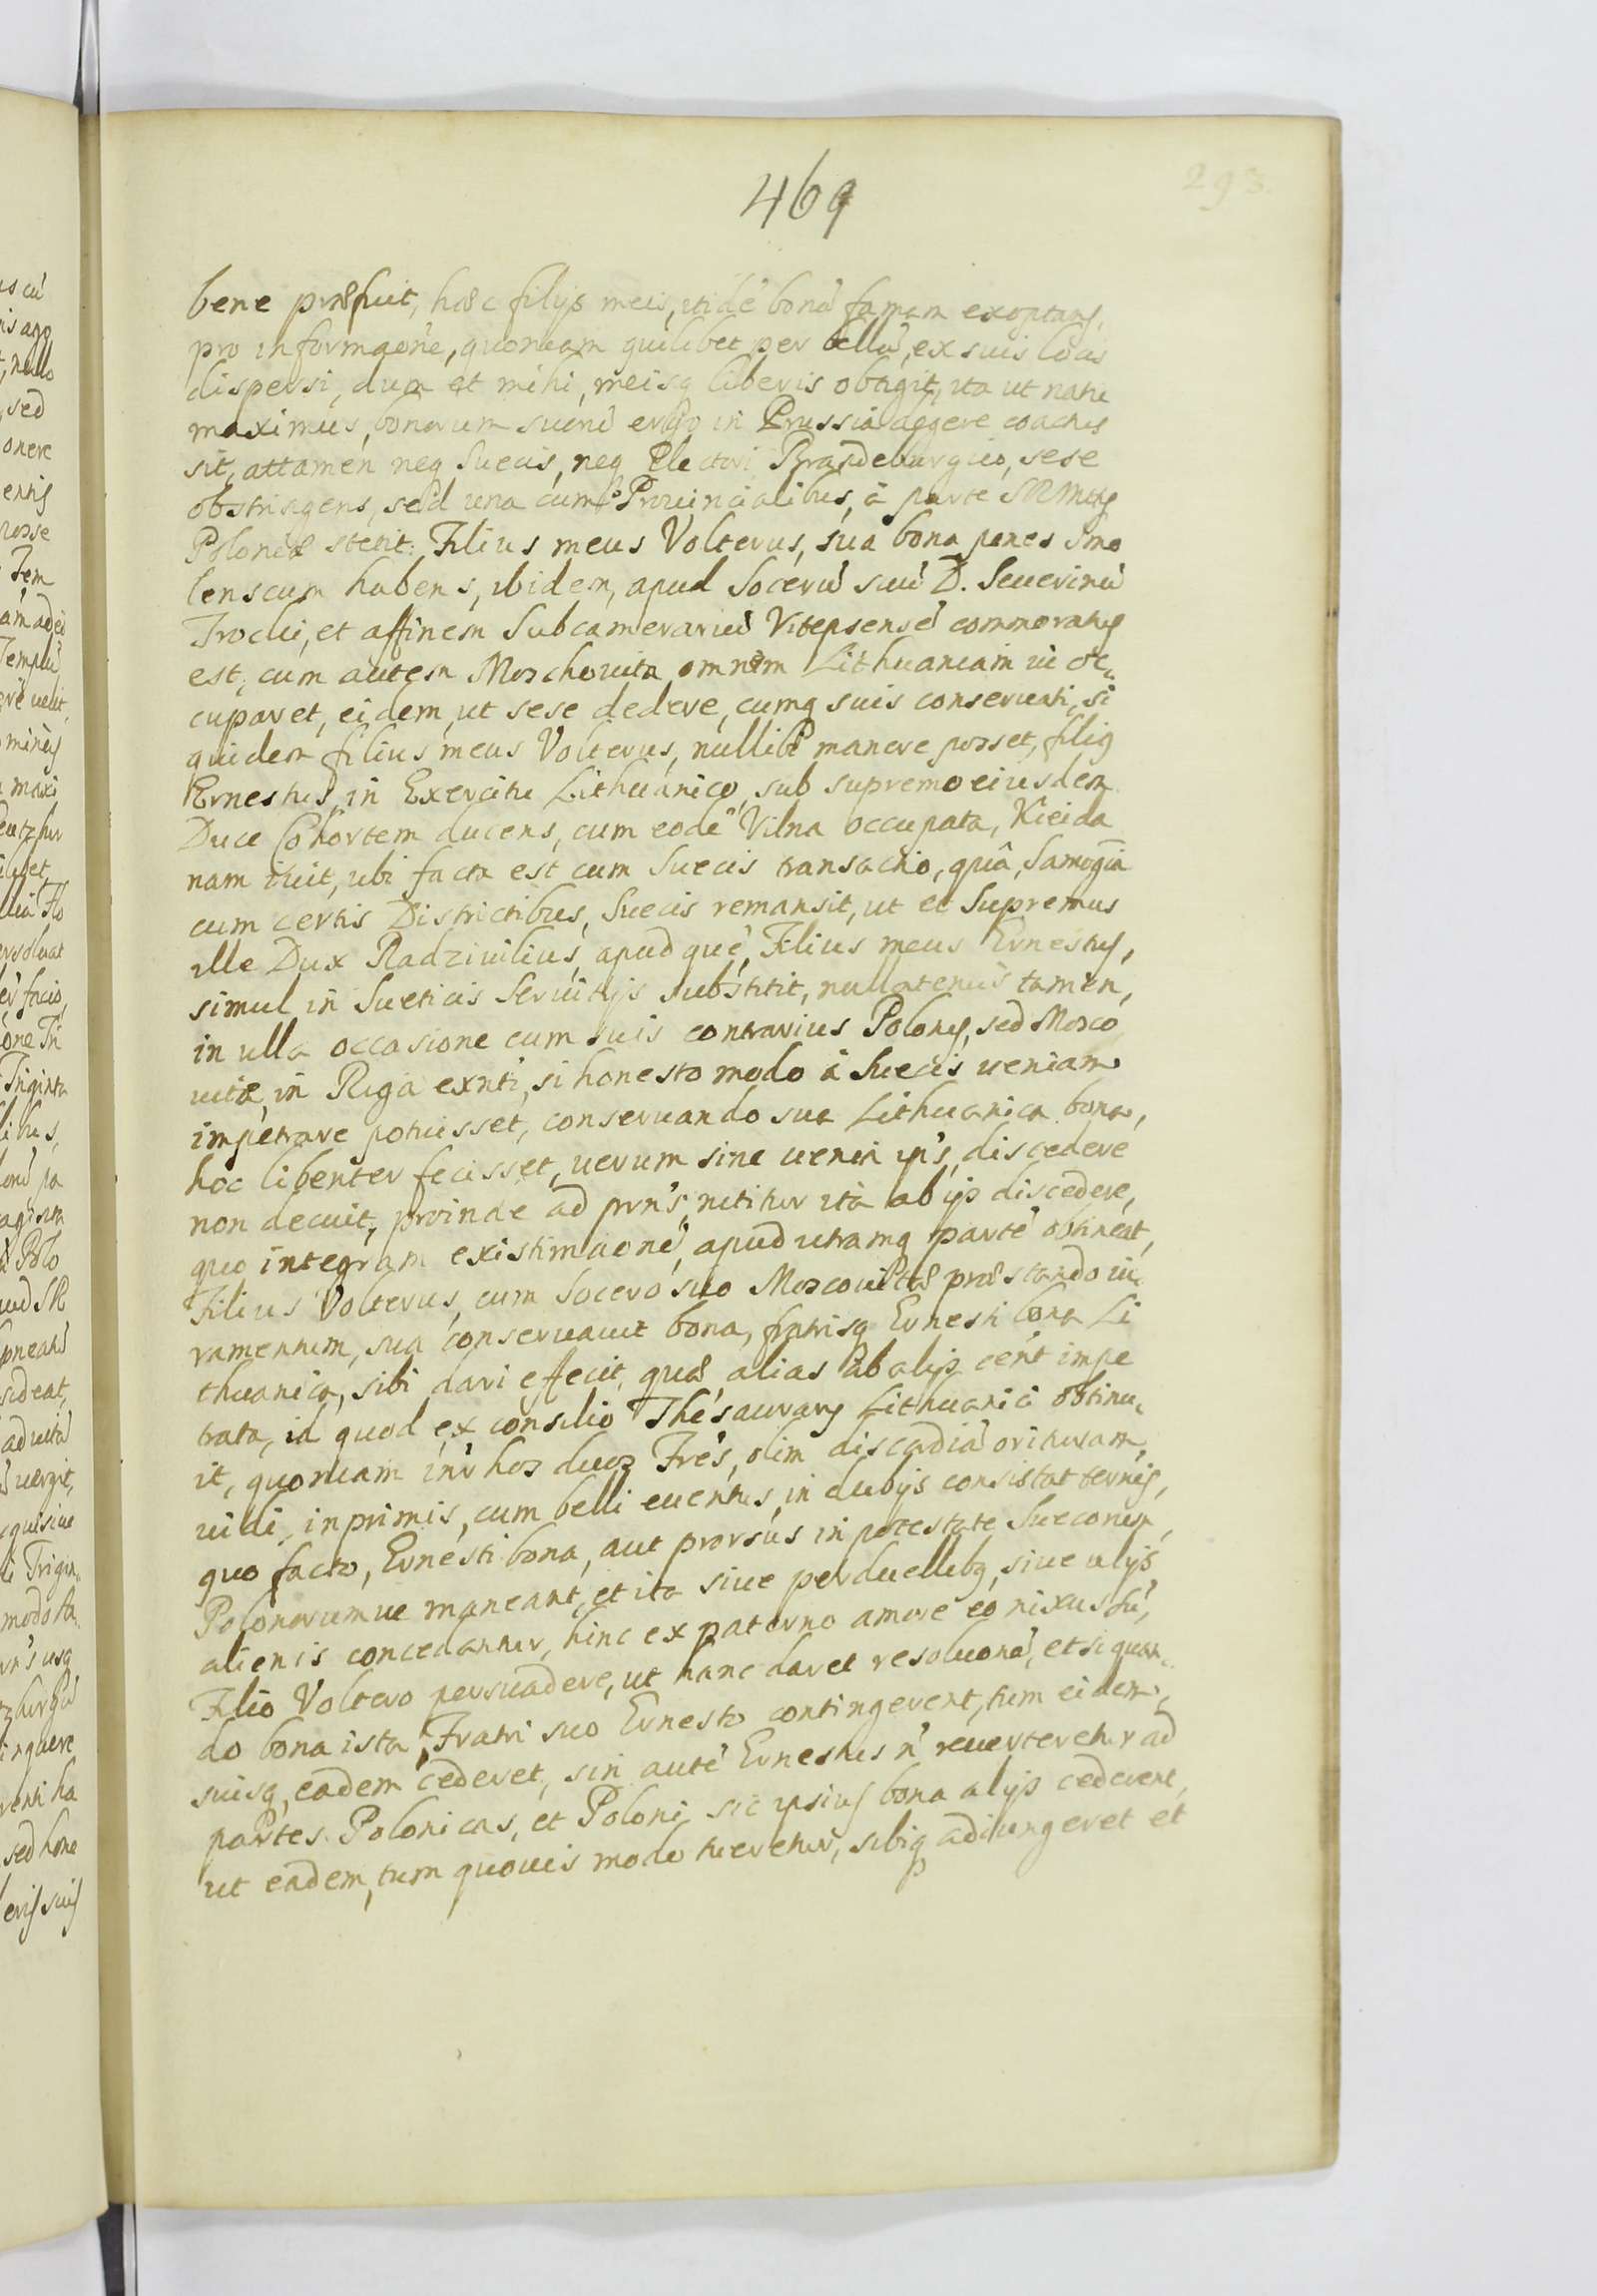 469
293.
bene præfuit, hæc filijs meis, itidē bonā famam exoptans,
pro informaōne, quoniam quilibet per bellū, ex suis locis
dispersi, dum et mihi, meisq liberis obtigit, ita ut natu
maximus, bonorum suorū ergo in Prussia degere coactus
sit, attamen neq Suecis, neq Electori Brandeburgico, sese
obstringens, sed una cum Prouincialibus, à parte SRMttis
Poloniæ stetit. Filius meus Volterus, sua bona penes Smo
lenscum habens, ibidem, apud Socerū suū D. Seuerinū
Trocki, et affinem Subcamerariū Vitepsensē commoratus
est, cum autem Moschouita omnem Lithuaniam ui oc„
cuparet, eidem, ut sese dedere, cumq suis conseruati, si
quidem filius meus Volterus, nullibi manere posset, filius
Ernestus, in Exercitu Lithuanico, sub supremo eiusdem
Duce Cohortem ducens, cum eodē Vilna occupata, Kieida
nam iuit, ubi facta est cum Suecis transactio, quâ, Samogia
cum certis Districtibus, Suecis remansit, ut et Supremus
ille Dux Radziuilius, apud quē, Filius meus Ernestus,
simul in Sueticis Seruitijs substitit, nullatenus tamen,
in ulla occasione cum suis contrarius Polonis, sed Mosco
uitæ, in Riga exnti, si honesto modo à Suecis ueniam
impetrare potuisset, conseruando sua Lithuanica bona,
hoc libenter fecisset, uerum sine uenia ip's, discedere
non decuit, proinde ad prn's, nititur ita ab ijs discedere,
quo integram existimaonē, apud utramq partē obtineat,
Filius Volterus, cum Socero suo Moscouitæ præstando iu„
ramentum, sua conseruauit bona, fratrisq Ernesti bona Li
thuanica, sibi dari effecit, quæ alias ab alijs eēnt impe
trata, id quod ex consilio Thesaurarij Lithuaniæ obtinu„
it, quoniam int'r hos duos Frēs, olim discordiā orituram,
uidi, inprimis, cum belli euentus, in dubijs consistat ternis,
quo facto, Ernesti bona, aut prorsus in potestate Suecorum,
Polonorumue maneant, et ita siue perduellibq, siue alijs
alienis concedantur, hinc ex paterno amore eo nixus sū,
Filio Voltero persuadere, ut hanc daret resoluonē, et si quan„
do bona ista, Fratri suo Ernesto contingerent, tum eidem,
suisq, eadem cederet, sin autē Ernestus n' reuerteretur ad
partes Polonicas, et Poloni sic ipsius bona alijs cederent,
ut eadem, tum quouis modo tueretur, sibiq adiungeret et